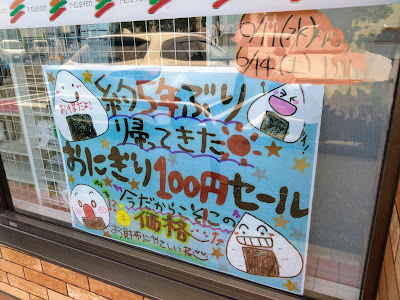 7-ELEVEN
7-ELEVEN
7-ELEVEN
9/11(水)
9/14(土)
お得だよ!
約5年ぶり
帰ってきた
おにぎり100円セール
今だからこその
価格
お財布にやさしい